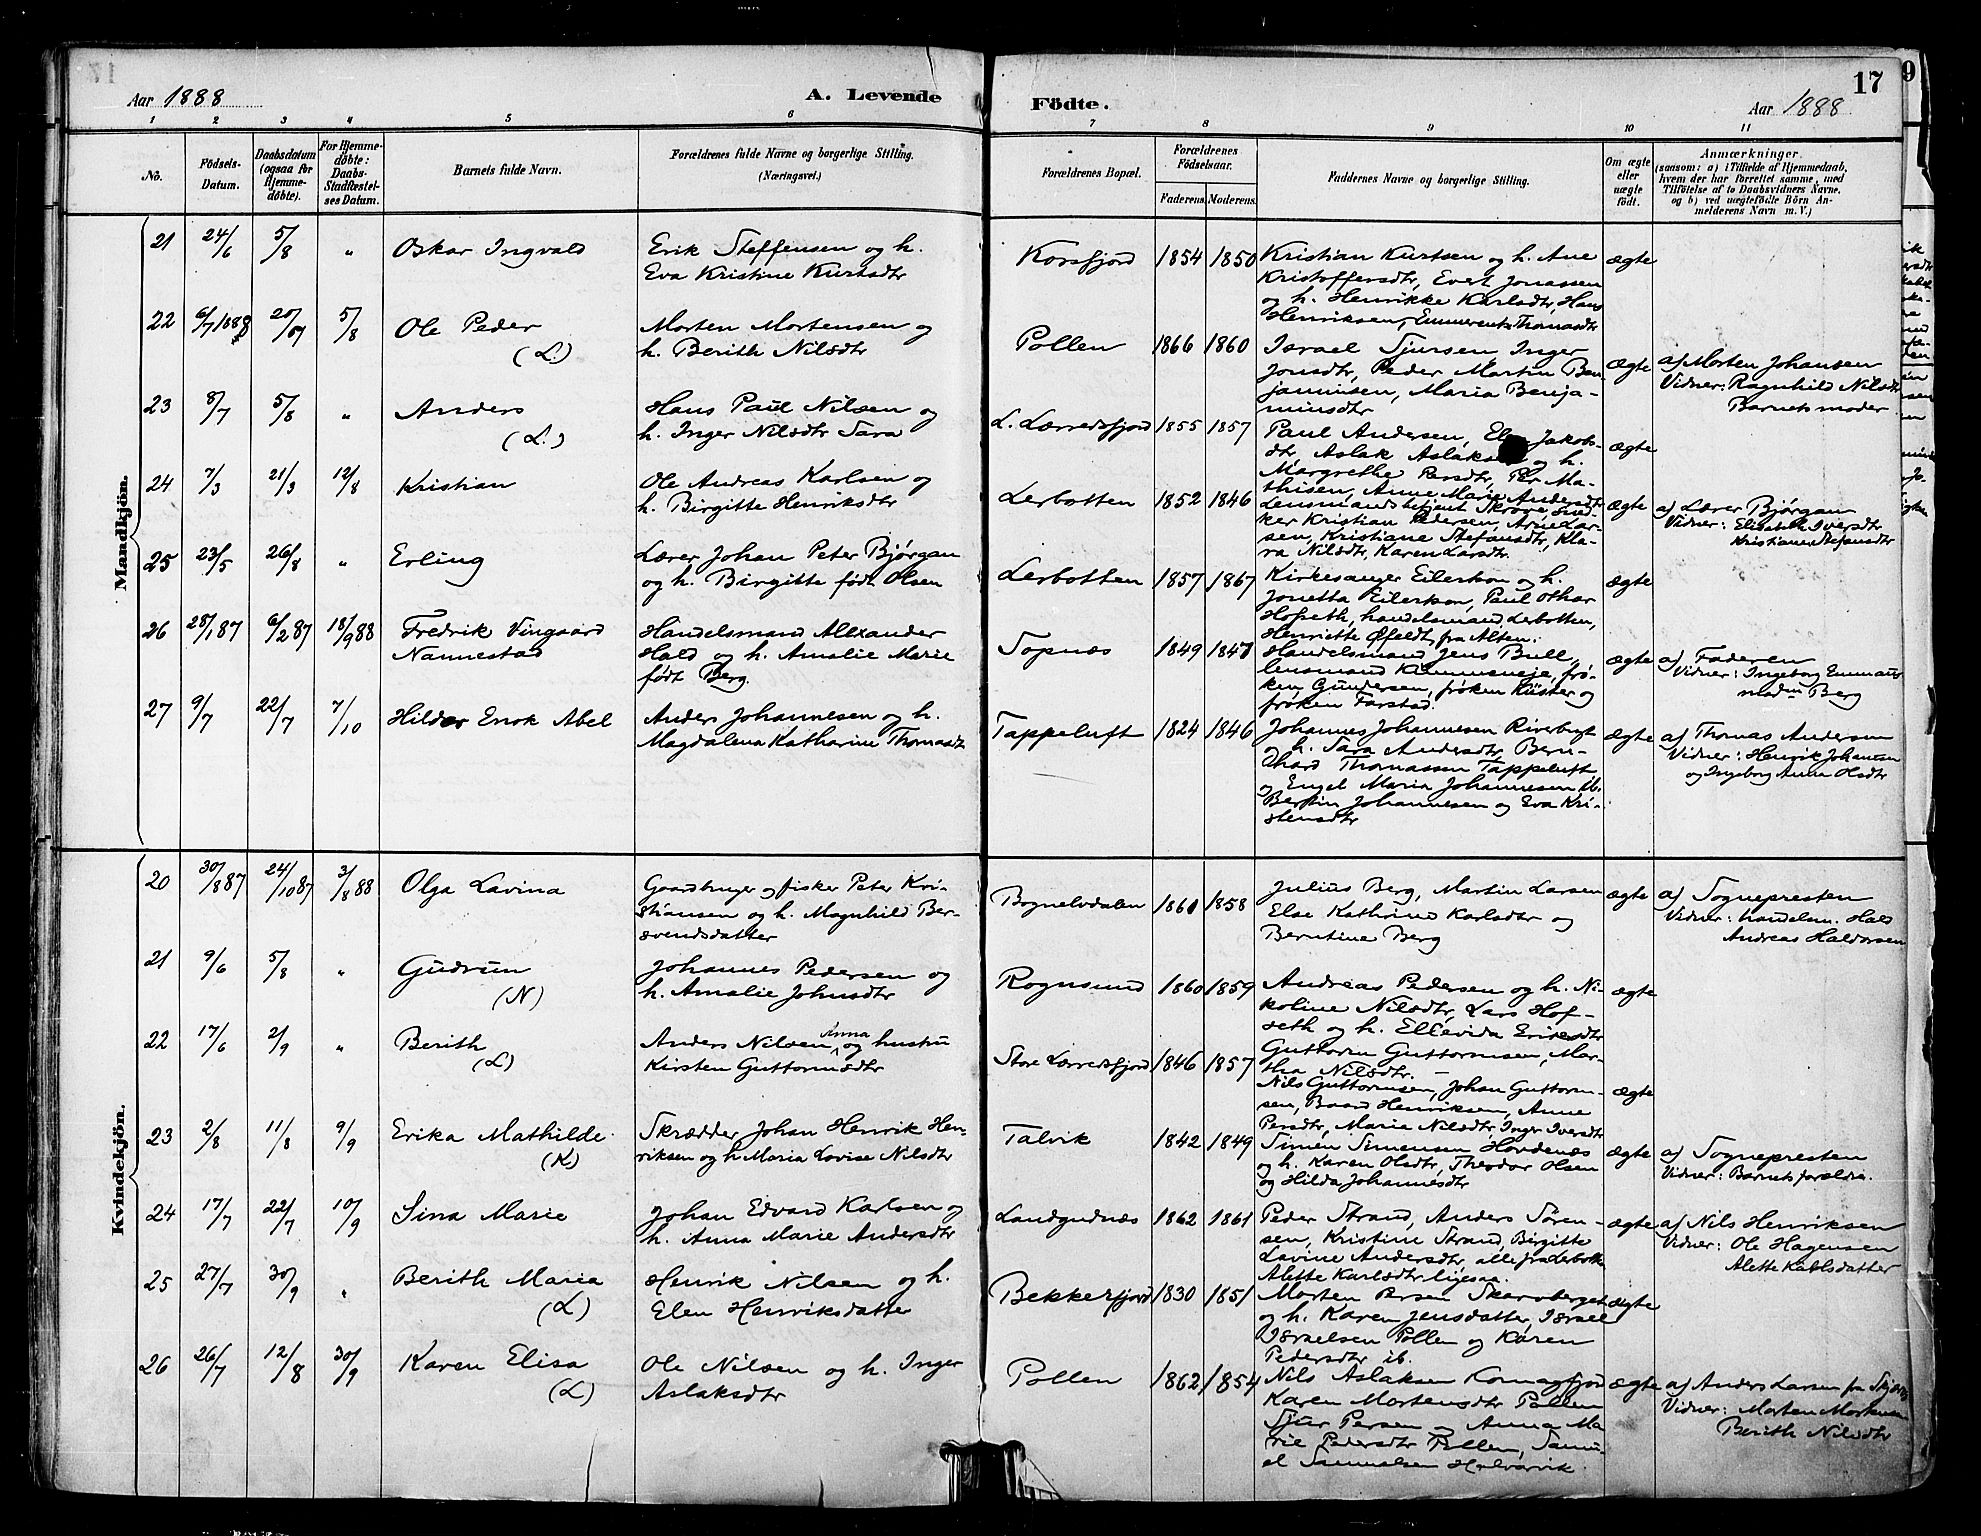 17
Aar 1888 A. Levende Fødte. Aar 1888
1 2 3 4 5 6 7 8 9 10 11
No. Födsels-Datum. Daabsdatum (ogsaa for Hjemme-døbte). For Hjemme-døbte: Daabs-Stadfæstel-ses Datum. Barnets fulde Navn. Forældrenes fulde Navne og borgerlige Stilling. (Næringsvei.) Forældrenes Bopæl. Forældrenes Födselsaar. Faderens Moderens Faddernes Navne og borgerlige Stilling. Om ægte eller uægte født. Anmærkninger.
(saasom: a) i Tilfælde af Hjemmedaab,
hvem der har forrettet samme, med
Tilføielse af to Daabsvidners Navne,
og b) ved uægtefødte Börn An-
melderens Navn m. V.)
Mandkjön.
21 24/6 5/8 " Oskar Ingvald
Erik Steffensen og h.
Eva Kristine Kurtsdtr
Korsfjord 1854 1850
Kristian Kurtsen og h. Ane
Kristoffersdtr, Evert Jonassen
og h. Henrikke Karlsdtr, Hans
Henriksen, Emmerents Thomasdtr
ægte
22 6/7 1888 20/7 5/8 Ole Peder
(L.)
Morten Mortensen og
h. Berith Nilsdtr
Pollen 1866 1860
Israel Sjursen, Inger
Jonsdtr, Peder Martin Ben-
jaminsen, Maria Benja-
minsdtr
ægte
a) Morten Johansen
Vidner: Ragnhild Nilsdtr
Barnets moder
23 8/7 5/8 " Anders
(L.)
Hans Paul Nilsen og
h. Inger Nilsdtr Sara
L. Lærredsfjord 1855 1857
Paul Andersen, Jakobs-
dtr, Aslak og h.
Margrethe Persdtr, Per Ma-
thisen, Anne Marie Andersdtr
ægte
24 7/3 21/3 12/8 Kristian
Ole Andreas Karlsen og
h. Birgitte Henriksdtr
Lerbotten 1852 1846
Lensmandsbetjent Skrøve, Sned-
ker Kristian Pedersen, Arne Lar-
sen, Kristiane Stefansdtr, Kla-
ra Nilsdtr, Karen Larsdtr.
ægte
a) Lærer Bjørgan
Vidner: Elisabeth Iversdtr
Kristiane Stefansdtr
25 23/5 26/8 " Erling
Lærer Johan Peter Bjørgan
og h. Birgitte født Olsen
Lerbotten 1857 1867
Kirkesanger Eilertson og h.
Jonetta Eilertson, Paul Othar
Hofseth, handelsmand Lerbotten,
Henriette Øfeldt fra Alten.
ægte
26 28/1 87 6/2 87 18/9 88 Fredrik Vingaard
Nannestad
Handelsmand Alexander
Hald og h. Amalie Marie
født Berg.
Sopnæs 1849 1847
Handelsmand Jens Bull,
lensmand Kummeneje, frø-
ken Gundersen, frøken Küster og
frøken Farstad.
ægte
a) Faderen
Vidner: Ingeborg Emmaus
madm Berg
27 9/7 22/7 7/10 Hilder Enok Abel
Anders Johannesen og h.
Magdalena Katharine Thomasdtr
Tappeluft 1824 1846
Johannes Johannesen Riverbugt
og h. Sara Andersdtr, Bern-
hard Thomassen Tappeluft
og Engel Maria Johannesen ib.
Bertin Johannesen og Eva Kri-
stensdtr
ægte
a) Thomas Andersen
Vidner: Henrik Johansen
og Ingeborg Anna Olsdtr
Kvindekjön.
20 30/8 87 24/10 87 3/8 88 Olga Lavina
Gaardbruger og fisker Peter Kri-
stiansen og h. Magnhild Ber-
svendsdatter
Bognelvdalen 1861 1858
Julius Berg, Martin Larsen
Else Kathrine Karlsdtr og
Berntine Berg
ægte
a) Sognepresten
Vidner: handelsm. Hald
Andreas Haldorsen
21 9/6 5/8 " Gudrun
(N)
Johannes Pedersen og
h. Amalie Johnsdtr
Rognsund 1860 1859
Andreas Pedersen og h. Ni-
koline Nilsdtr, Lars Hof-
seth og h. Ellevida Eriksdtr
ægte
22 17/6 2/9 " Berith
(L)
Anders Nilsen og hustru Anna
Kirsten Guttormsdtr
Store Lærredsfjord 1846 1857
Guttorm Guttormsen, Mar-
tha Nilsdtr. –
Nils Guttormsen, Johan Guttorm-
sen, Baard Henriksen, Anne
Persdtr, Maria Nilsdtr, Inger Iversdtr
ægte
23 2/8 11/8 9/9 Erika Mathilde
(K)
Skrædder Johan Henrik Hen-
riksen og h. Maria Lovise Nilsdtr
Talvik 1842 1849
Simen Simensen Hovdenæs
og h. Karen Olsdtr, Theodor Olsen
og Hilda Johannesdtr
ægte
a) Sognepresten
Vidner: Barnets forældre.
24 17/7 22/7 10/9 Sina Marie
Johan Edvard Karlsen og
h. Anna Marie Andersdtr
Landgudnæs 1862 1861
Peder Strand, Anders Søren-
sen, Kristine Strand, Birgitte
Lavine Andersdtr, alle fra Lerbotten
Alette Karlsdtr ligesaa.
ægte
a) Nils Henriksen
Vidner: Ole Hagensen
Alette Karlsdatter
25 27/7 30/9 " Berith Maria
(L)
Henrik Nilsen og h.
Elen Henriksdatter
Bekkerfjord 1830 1851
Morten Persen Skarvberget
og h. Karen Jensdatter, Israel
Israelsen Pollen og Karen
Pedersdtr ib.
ægte
26 26/7 12/8 30/9 Karen Elisa
(L)
Ole Nilsen og h. Inger
Aslaksdtr
Pollen 1862 1854
Nils Aslaksen Komagfjord
Karen Mortensdtr Pollen
Sjur Persen og Anna Ma-
rie Pedersdtr Pollen, Samu-
el Samuelsen Halvarvik
ægte
a) Anders Larsen fra
Vidner: Morten Mortensen
Berith Nilsdtr